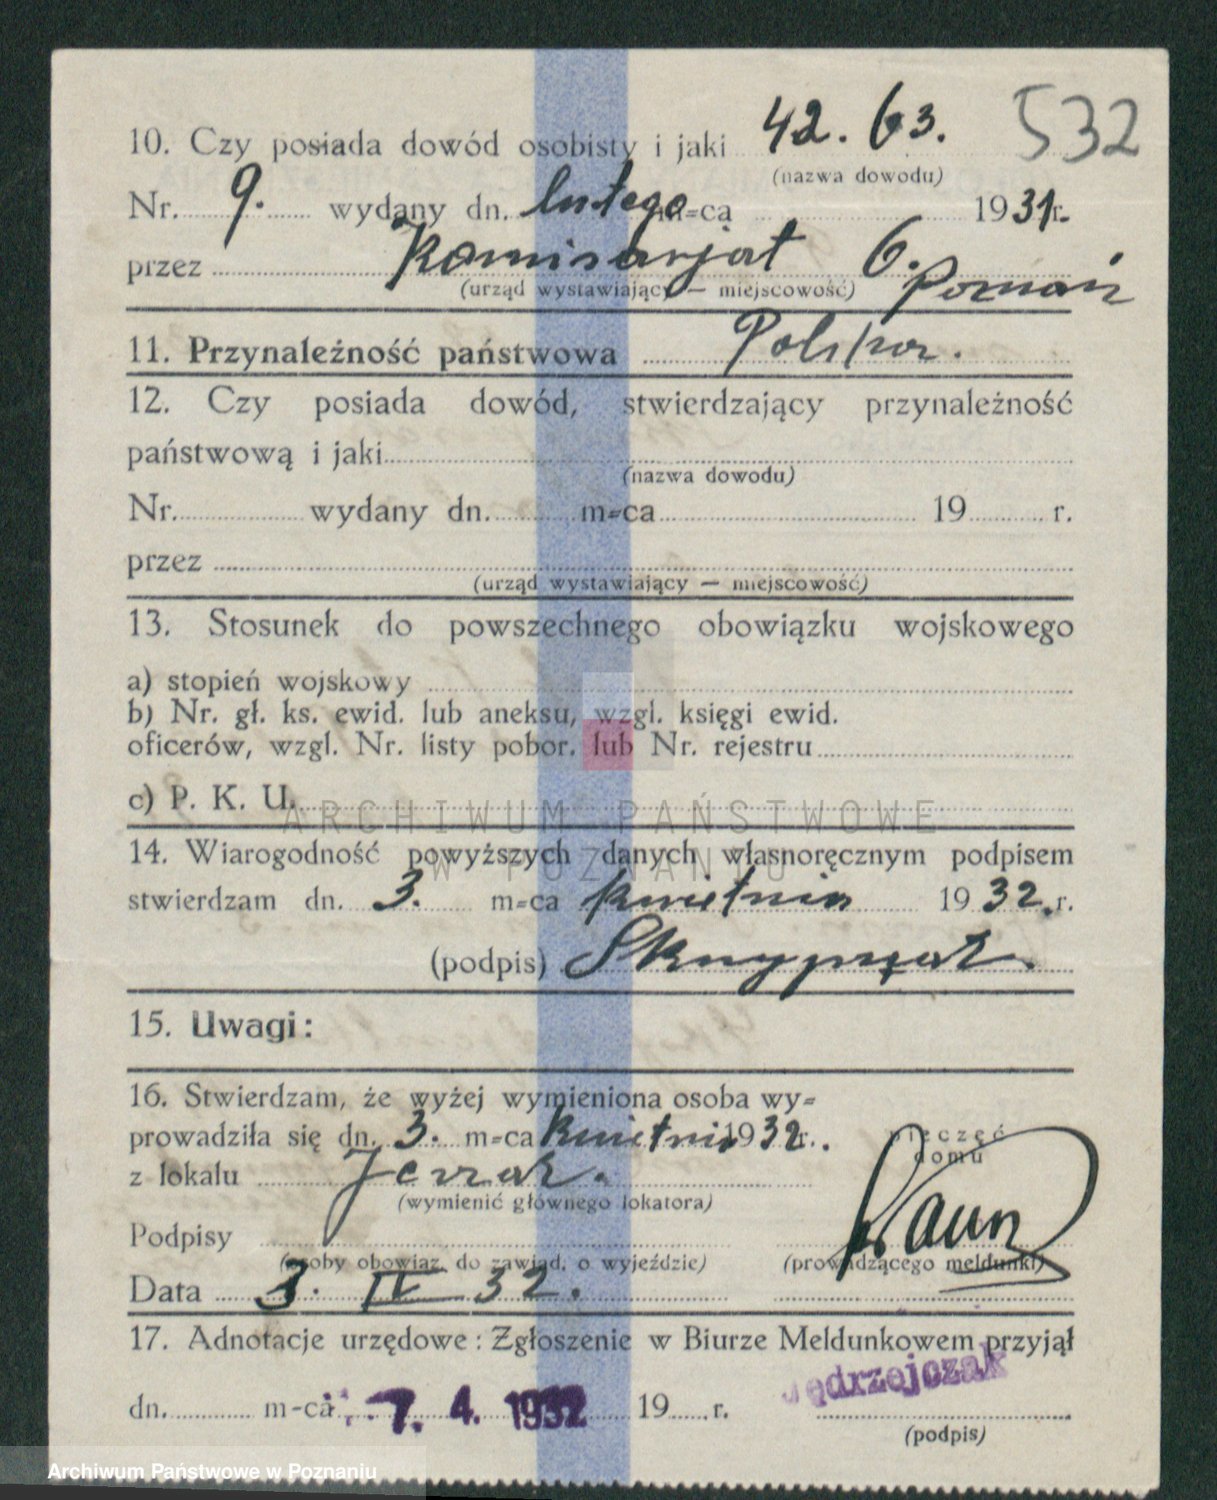 532
10. Czy posiada dowód osobisty i jaki 42. 63.
(nazwa dowodu)
Nr. 9. wydany dn. lutego m=ca 1931r.
przez Komisarjat 6. Poznań
(urząd wystawiający — miejscowość)
11. Przynależność państwowa Polska.
12. Czy posiada dowód, stwierdzający przynależność
państwową i jaki
(nazwa dowodu)
Nr. wydany dn. m=ca 19 r.
przez
(urząd wystawiający — miejscowość)
13. Stosunek do powszechnego obowiązku wojskowego
a) stopień wojskowy
b) Nr. gł. ks. ewid. lub aneksu, wzgl. księgi ewid.
oficerów, wzgl. Nr. listy pobor. lub Nr. rejestru
c) P. K. U.
ARCHIWUM PAŃSTWOWE
W POZNANIU
14. Wiarogodność powyższych danych własnoręcznym podpisem
stwierdzam dn. 3. m=ca kwietnia 1932. r.
(podpis)
15. Uwagi:
16. Stwierdzam, że wyżej wymieniona osoba wy=
prowadziła się dn. 3. m=ca kwietnia 1932r.
pieczęć
domu
z lokalu
(wymienić głównego lokatora)
Podpisy
(osoby obowiąz. do zawiad. o wyjeździe) (prowadzącego meldunki)
Data 3. IV 32.
17. Adnotacje urzędowe: Zgłoszenie w Biurze Meldunkowem przyjął
Jędrzejczak
dn. m-ca 7. 4. 1932 19 r.
(podpis)
Archiwum Państwowe w Poznaniu